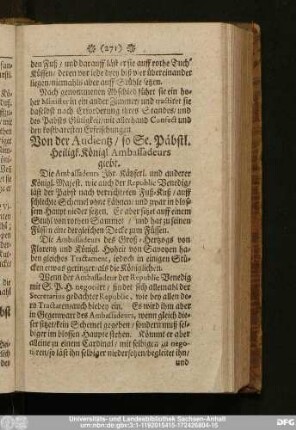 (271)
den Fuß / und darauff läst er sie auff rothe Tuch-
Küssen / deren vor jeden drey biß vier übereinander
liegen / niemahls aber auff Stühle setzen.
Nach genommenen Abschied führet sie ein ho-
her Minister in ein ander Zimmer / und tractiret sie
daselbst nach Erforderung ihres Standes / und
des Pabsts Gütigkeit / mit allerhand Confect und
den kostbaresten Erfrischungen.
Von der Audientz / so Se. Päbstl.
Heiligk. Königl. Ambassadeurs
giebt.
Die Ambassadeurs Ihr. Käyserl. und anderer
Königl. Majest. wie auch der Republic Venedig /
läst der Pabst nach verrichteten Fuß-Kuß / auff
schlechte Schemel ohne Lähnen / und zwar in blo-
ssem Haupt nieder setzen. Er aber sitzt auff einem
Stuhl von rothen Sammet / und hat zu seinen
Füssen eine dergleichen Decke zum Füssen.
Die Ambassadeurs des Groß-Hertzogs von
Florentz und Königl. Hoheit von Savoyen ha-
ben gleiches Tractament, jedoch in einigen Stü-
cken etwas geringer / als die Königlichen.
Wenn der Ambassadeur der Republic Venedig
mit S. P. H. negociret / findet sich allemal der
Secretarius gedachter Republic, wie bey allen de-
ro Tractamenten ein bey. Es wird ihm aber
in Gegenwart des Ambassadeurs, wenn gleich die-
ser sitzet / kein Schemel gegeben / sondern muß sel-
biger im blossen Haupte stehen. Kömmt er aber
alleine zu einem Cardinal / mit selbigen zu nego-
ciren / so läst ihn selbiger niedersetzen / begleitet ihn /
und
Universitäts- und Landesbibliothek Sachsen-Anhalt
urn:nbn:de:gbv:3:1-1192015415-172426804-15